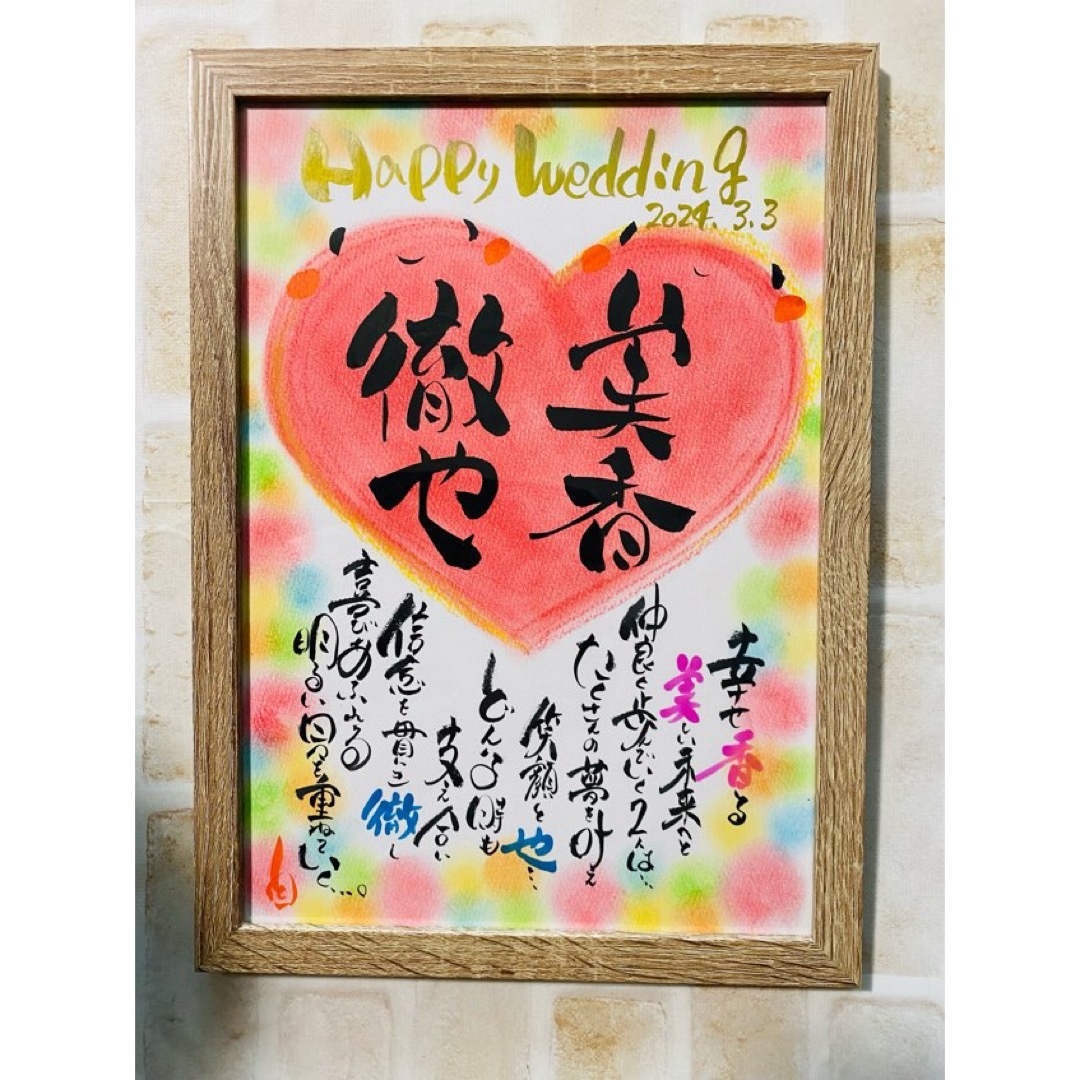 Happy Wedding
2024.3.3
美香
徹也
幸せ香る
美しい未来へと
仲良く歩んでいく2人は…
たくさんの夢を叶え
笑顔を也…
どんな時も
支え合い
信念を貫に徹し
喜びあふれる
明るい日々を重ねていく…。